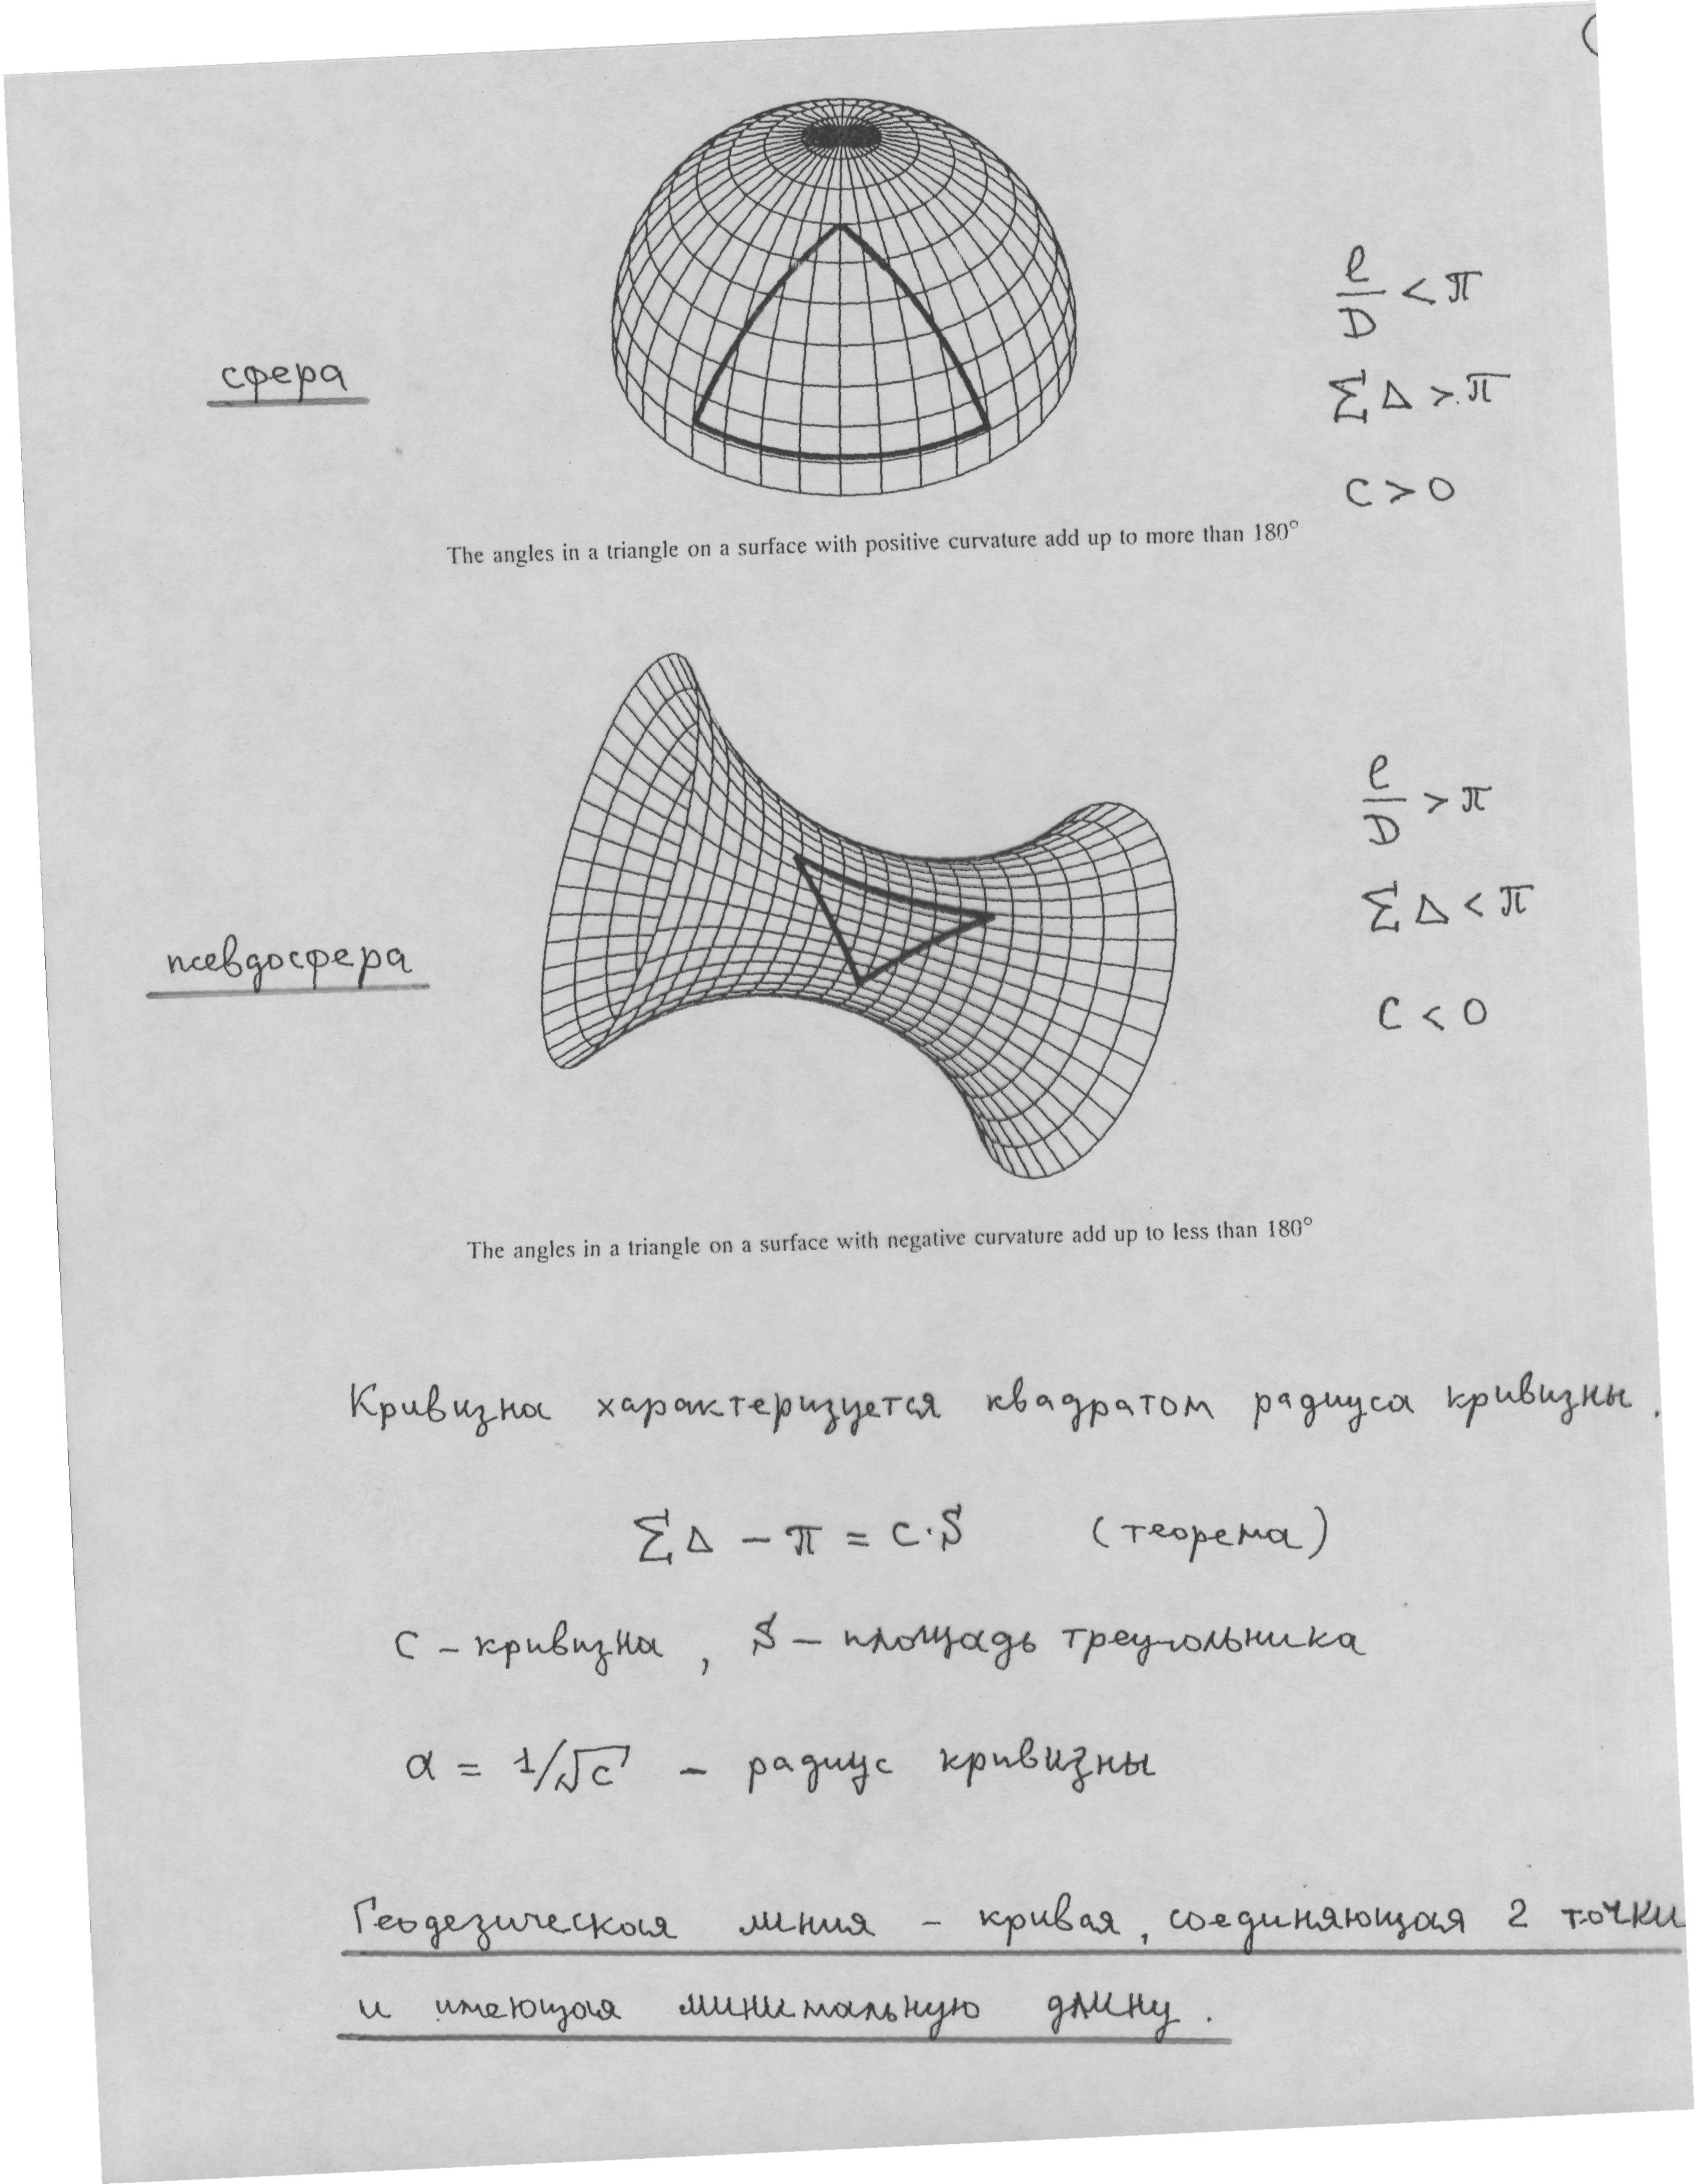 сфера
l/D < π
ΣΔ > π
C > 0
The angles in a triangle on a surface with positive curvature add up to more than 180°
псевдосфера
l/D > π
ΣΔ < π
C < 0
The angles in a triangle on a surface with negative curvature add up to less than 180°
Кривизна характеризуется квадратом радиуса кривизны.
ΣΔ – π = C·S (теорема)
C – кривизна, S – площадь треугольника
a = 1/√C – радиус кривизны
Геодезическая линия – кривая, соединяющая 2 точки
и имеющая минимальную длину.